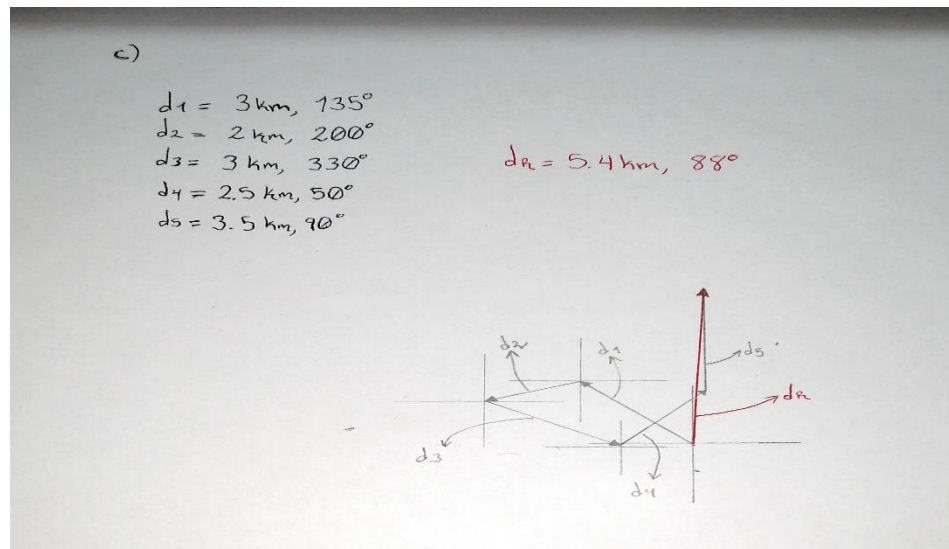 c)
d1 = 3 km, 135°
d2 = 2 km, 200°
d3 = 3 km, 330°
d4 = 2.5 km, 50°
d5 = 3.5 km, 90°
dR = 5.4 km, 88°
d2
d1
d5
dR
d3
d4